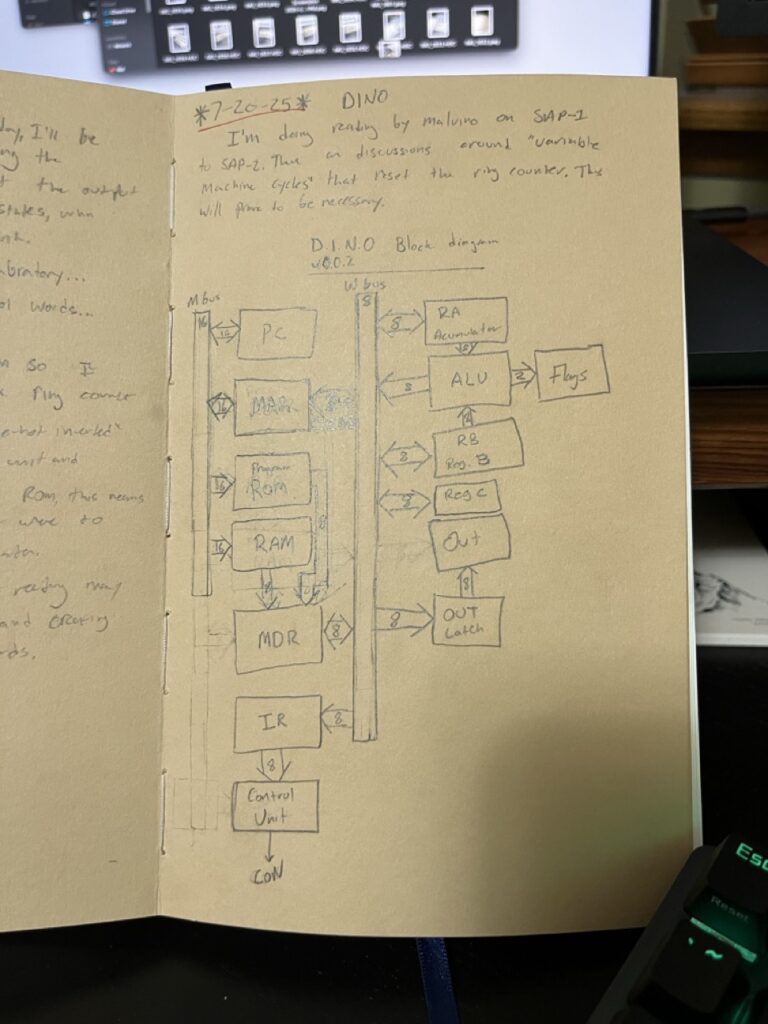 day, I'll be
the
the output
states, when
ol words...
so I
ring counter
unit and
Rom, this means
were to
reading may
and creating
*7-20-25* DINO
I'm doing reading by Malvino on SAP-1
to SAP-2. There are discussions around "variable
Machine Cycles" that reset the ring counter. This
will prove to be necessary.
D.I.N.O Block diagram
v0.0.2
M bus
W bus
16
8
16
PC
8
RA
Acumulator
8
ALU
2
Flags
16
MAR
8
8
8
RB
Reg. B
16
Program
ROM
8
8
Reg C
16
RAM
Out
8
8
MDR
8
8
OUT
Latch
IR
8
8
Control
Unit
CON
Esc
Reset
~